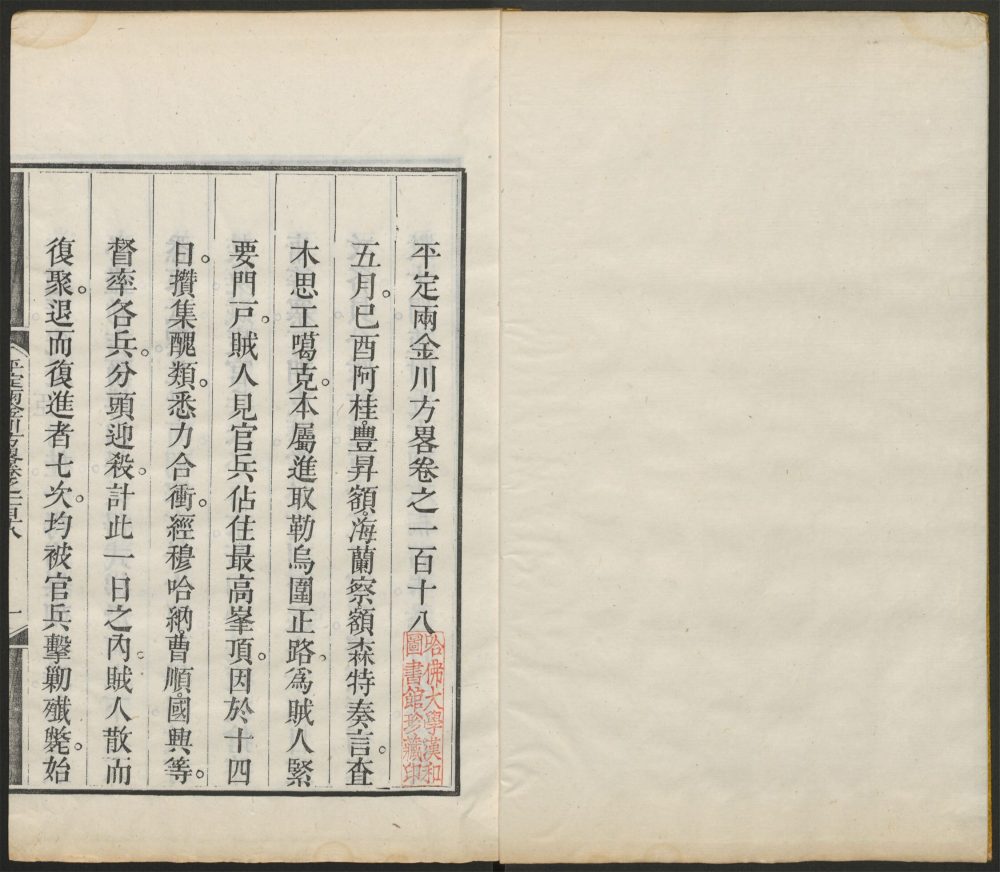 平定兩金川方畧卷之一百十八
五月。己酉阿桂。豐昇額。海蘭察。額森特奏言。查
木思工噶克。本屬進取勒烏圍正路。爲賊人緊
要門戸。賊人見官兵佔住最高峯頂。因於十四
日。攢集醜類。悉力合衝。經穆哈納。曹順。國興等。
督率各兵。分頭迎殺。計此一日之內。賊人散而
復聚。退而復進者七次。均被官兵擊勦殲斃。始
哈佛大學漢和
圖書館珍藏印
平定兩金川方畧卷之一百十八
一